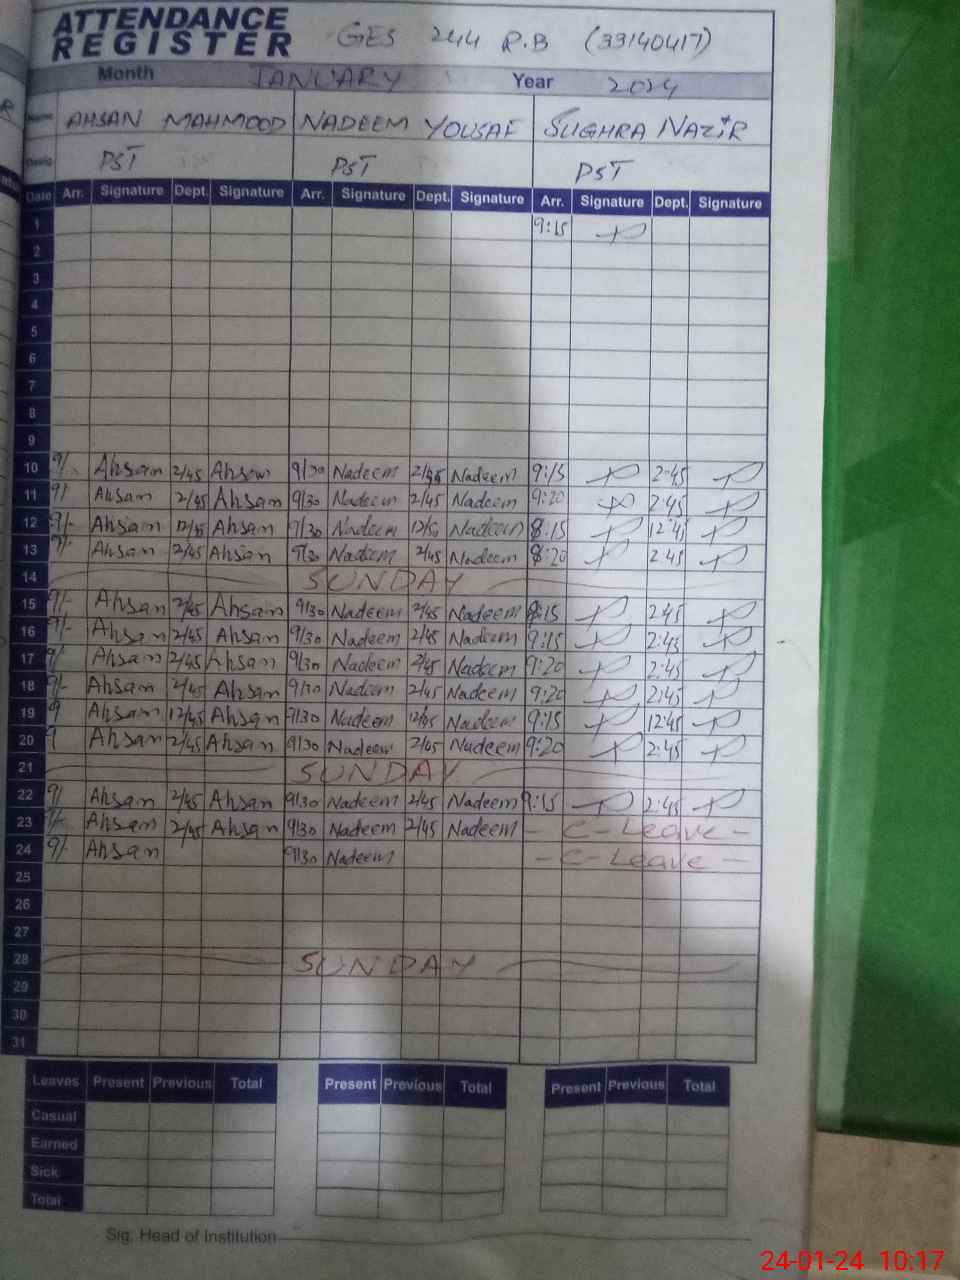 ATTENDANCE
REGISTER
GES 244 R.B (33140417)
Month JANUARY Year 2024
Name AHSAN MAHMOOD NADEEM YOUSAF SUGHRA NAZIR
Desig PST PST PST
Date Arr. Signature Dept. Signature Arr. Signature Dept. Signature Arr. Signature Dept. Signature
1 9:15
2
3
4
5
6
7
8
9
10 9/- Ahsan 2/45 Ahsan 9/30 Nadeem 2/45 Nadeem 9:15 2:45
11 9/ Ahsan 2/45 Ahsan 9/30 Nadeem 2/45 Nadeem 9:20 2:45
12 9/- Ahsan 12/45 Ahsan 9/30 Nadeem Nadeem 8:15 12:45
13 9/- Ahsan 2/45 Ahsan 9/30 Nadeem 2/45 Nadeem 8:20 2:45
14 SUNDAY
15 9/- Ahsan 2/45 Ahsan 9/30 Nadeem 2/45 Nadeem 2:45
16 9/- Ahsan 2/45 Ahsan 9/30 Nadeem 2/45 Nadeem 9:15 2:45
17 9/ Ahsan 2/45 Ahsan 9/30 Nadeem 2/45 Nadeem 9:20 2:45
18 9/- Ahsan 2/45 Ahsan 9/30 Nadeem 2/45 Nadeem 9:20 2:45
19 9 Ahsan 12/45 Ahsan 9/30 Nadeem 12/45 Nadeem 9:15 12:45
20 9 Ahsan 2/45 Ahsan 9/30 Nadeem 2/45 Nadeem 9:20 2:45
21 SUNDAY
22 9/ Ahsan 2/45 Ahsan 9/30 Nadeem 2/45 Nadeem 9:15 2:45
23 9/- Ahsan 2/45 Ahsan 9/30 Nadeem 2/45 Nadeem - C-Leave -
24 9/- Ahsan 9/30 Nadeem - C-Leave -
25
26
27
28 SUNDAY
29
30
31
Leaves Present Previous Total Present Previous Total Present Previous Total
Casual
Earned
Sick
Total
Sig. Head of Institution
24-01-24 10:17